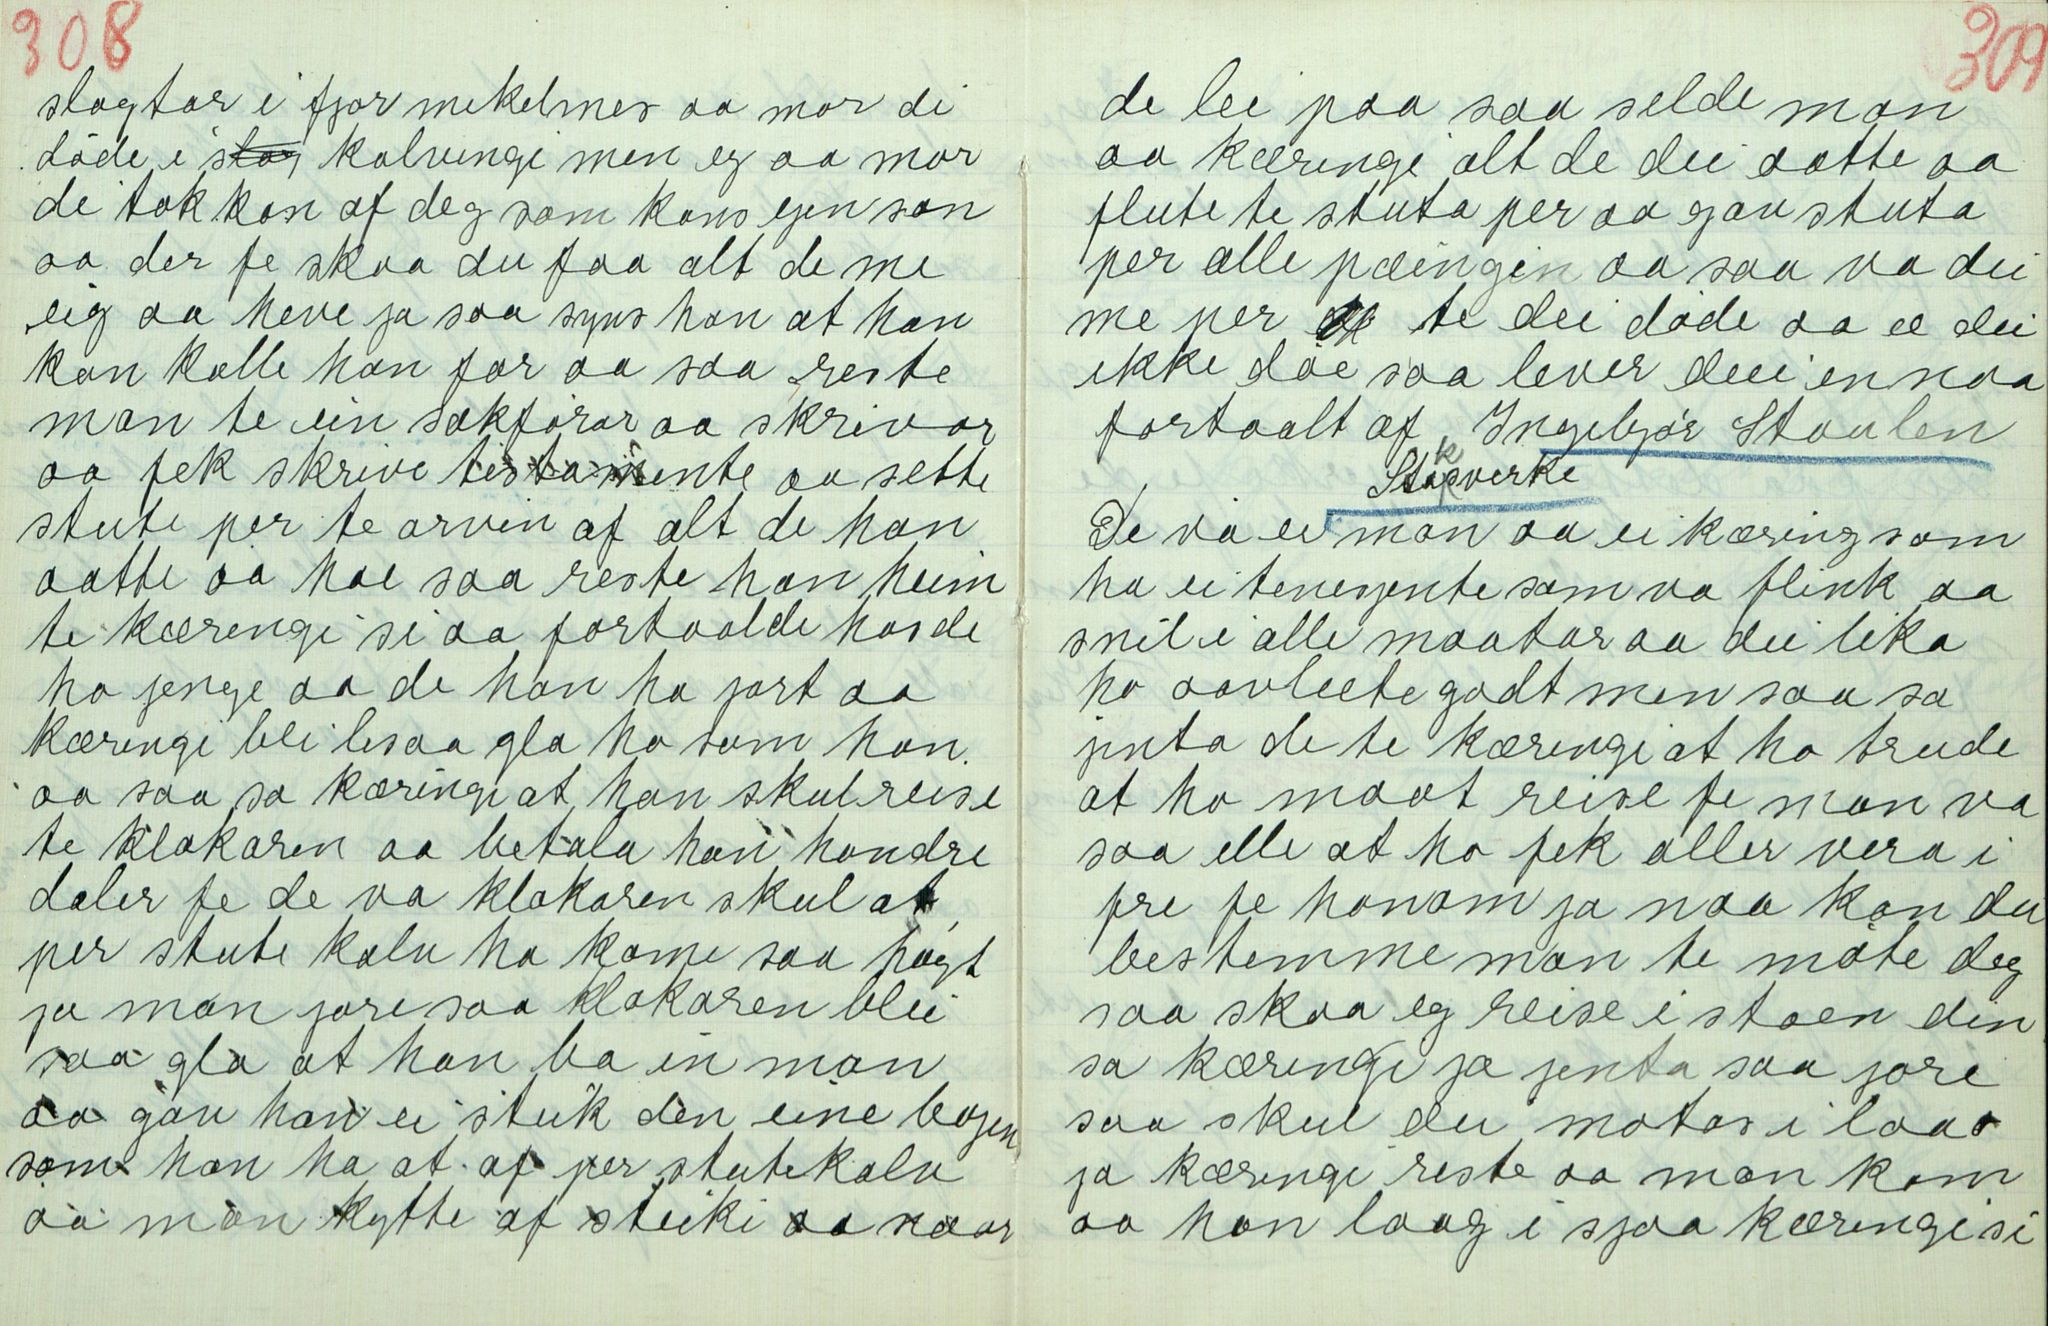 308
slagtar i fjor mekelmes aa mor di
döde i slag kalvingi men eg aa mor
di tok kon af deg som kons ejen son
aa der fe skaa du faa alt de me
eig aa heve ja saa syns han at han
kan kalle han far aa saa reste
man te ein sakförar aa skrivar
aa fek skrive testamente aa sette
stute per te arvin af alt de han
aatte aa hae saa reste han heim
te kæringi si aa fortaalde hos de
ha jenge aa de han ha jort aa
kæringi blei lesaa gla ho som han.
aa saa sa kæringi at han skul reise
te klokaren aa betala han hondre
daler fe de va klokaren skul at
per stute kalv ha kome saa högt
ja man jore saa klokaren blei
saa gla at han ba in man
aa gav han ei steik den eine bogen
som han ha at af per stutekalv
aa man kytte af steiki aa naar
309
de lei paa saa selde man
aa kæringi alt de dei aatte aa
flute te stuta per aa gav stuta
per alle pæingin aa saa va dei
me per te dei döde aa ee dei
ikke döe saa lever deei ennaa
fortaalt af Ingebjör Staulen
Stakkverke
De va ei man aa ei kæring som
ha ei tenesjente som va flink aa
snil i alle maatar aa dei lika
ho aavleete godt men saa sa
jnta de te kæringi at ho trude
at ho maat reise fe man va
saa elle at ho fek aller vera i
fre fe honom ja naa kan du
bestemme man te möte deg
saa skaa eg reise i staen din
sa kæringi ja jenta saa jore
saa skul dei motas i laas
ja kæringi reste aa man kom
aa han laag i sjaa kæringi si